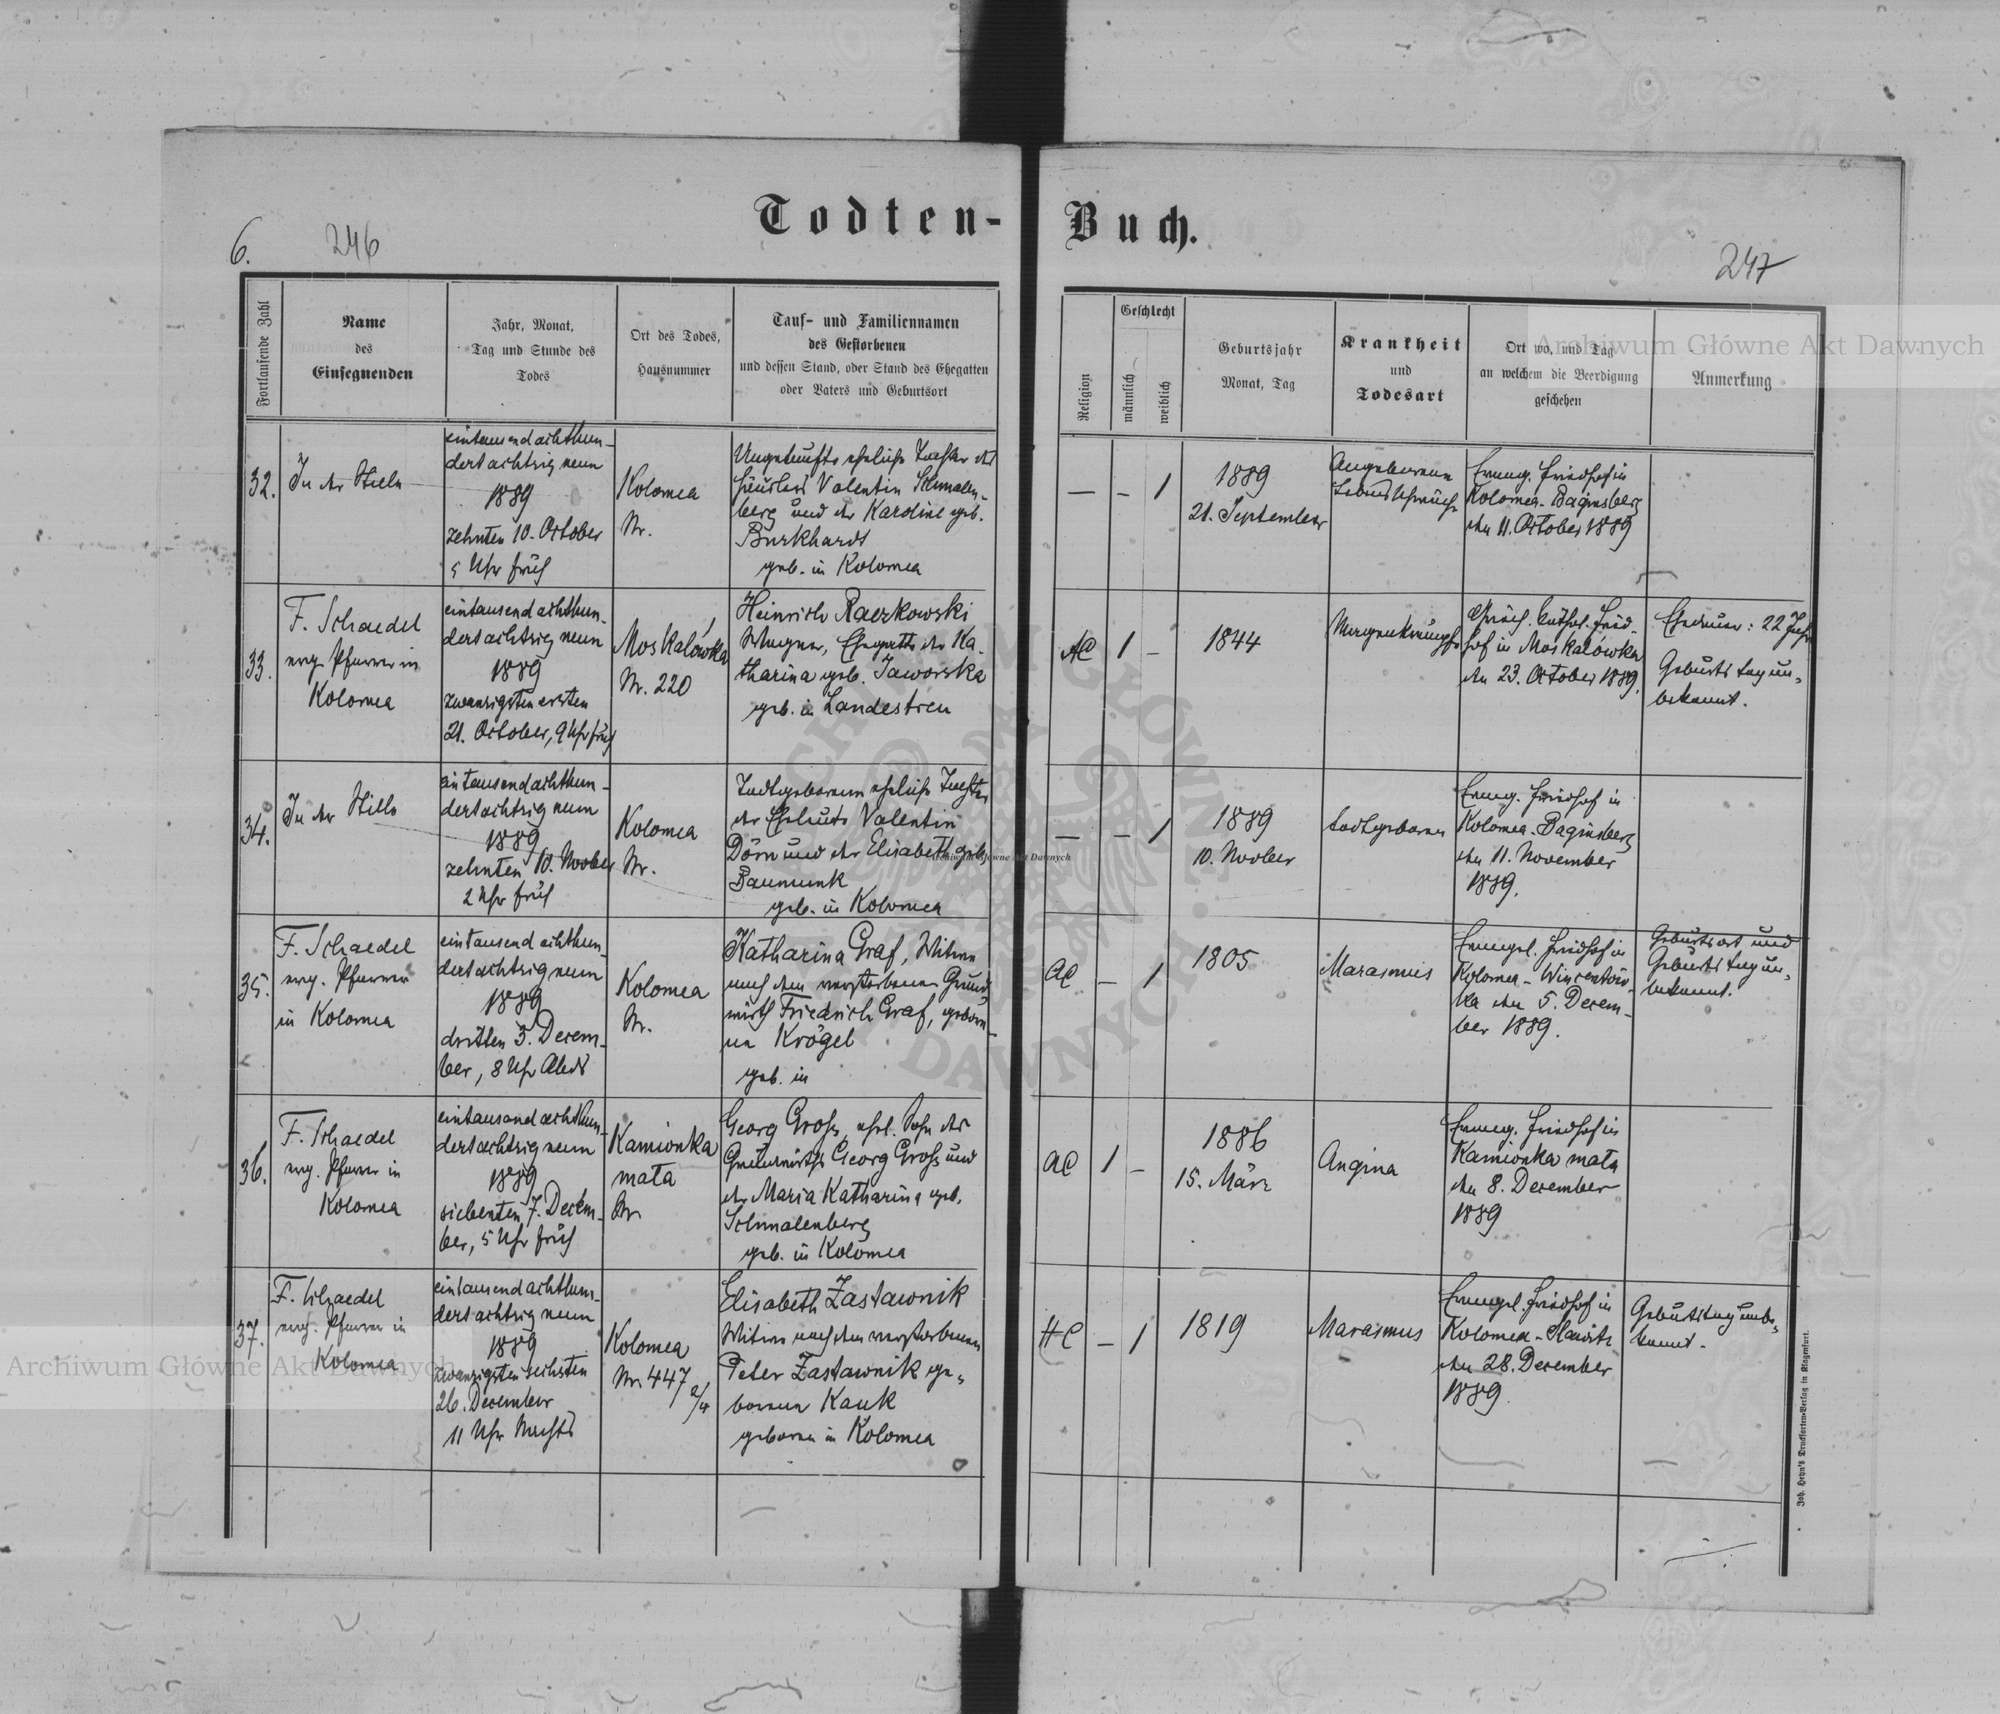 Todten-Buch.
6.
246
247
Fortlaufende Zahl
Name
des
Einsegnenden
Jahr, Monat,
Tag und Stunde des
Todes
Ort des Todes,
Hausnummer
Tauf- und Familiennamen
des Gestorbenen
und dessen Stand, oder Stand des Ehegatten
oder Vaters und Geburtsort
Religion
Geschlecht
männlich
weiblich
Geburtsjahr
Monat, Tag
Krankheit
und
Todesart
Ort wo, und Tag
an welchem die Beerdigung
geschehen
Anmerkung
32.
In der Stille
eintausend achthun-
dertachtzig neun
1889
zehnten 10. October
5 Uhr früh
Kolomea
Nr.
Ungetaufte eheliche Tochter des
Häuslers Valentin Schmalen-
berg und der Karoline geb.
Burkhardt
geb. in Kolomea
—
–
1
1889
21. September
Angeborene
Lebensschwäche
Evang. Friedhof in
Kolomea-Baginsberg
den 11. October 1889
33.
F. Schaedel
evg. Pfarrer in
Kolomea
eintausend achthun-
dertachtzig neun
1889
zwanzigsten ersten
21. October, 9 Uhr früh
Moskalówka
Nr. 220
Heinrich Raczkowski
Wagner, Ehegatte der Ka-
tharina geb. Jaworska
geb. in Landestreu
AC
1
–
1844
Magenkrämpfe
Friedhof in Moskalówka
den 23. October 1889.
Ehedauer: 22 Jahre
Geburtstag un-
bekannt.
34.
In der Stille
eintausend achthun-
dertachtzig neun
1889
zehnten 10. Novber
2 Uhr früh
Kolomea
Nr.
Todtgeborene eheliche Tochter
der Eheleute Valentin
Dörn und der Elisabeth geb.
Baumunk
geb. in Kolomea
—
–
1
1889
10. Novber
todtgeboren
Evang. Friedhof in
Kolomea-Baginsberg
den 11. November
1889.
35.
F. Schaedel
evg. Pfarrer
in Kolomea
eintausend achthun-
dertachtzig neun
1889
dritten 3. Decem-
ber, 8 Uhr Abds
Kolomea
Nr.
Katharina Graf, Witwe
nach dem verstorbenen Grund-
wirth Friedrich Graf, gebore-
ne Krögel
geb. in
AC
–
1
1805
Marasmus
Evangel. Friedhof in
Kolomea-Wincentów-
ka den 5. Decem-
ber 1889.
Geburtsort und
Geburtstag un-
bekannt.
36.
F. Schaedel
evg. Pfarrer in
Kolomea
eintausend achthun-
dertachtzig neun
1889
siebenten 7. Decem-
ber, 5 Uhr früh
Kamionka
mała
Nr.
Georg Groß, ehel. Sohn des
Grundwirths Georg Groß und
der Maria Katharina geb.
Schmalenberg
geb. in Kolomea
AC
1
–
1886
15. März
Angina
Evang. Friedhof in
Kamionka mała
den 8. December
1889
37.
F. Schaedel
evg. Pfarrer in
Kolomea
eintausend achthun-
dertachtzig neun
1889
zwanzigsten sechsten
26. December
11 Uhr Nachts
Kolomea
Nr. 447 2/4
Elisabeth Zastawnik
Witwe nach dem verstorbenen
Peter Zastawnik ge-
borene Kauk
geboren in Kolomea
HC
–
1
1819
Marasmus
Evangel. Friedhof in
Kolomea-Slawitz
den 28. December
1889
Geburtstag unbe-
kannt.
Joh. Heyn's Drucksorten-Verlag in Klagenfurt.
Archiwum Główne Akt Dawnych
Archiwum Główne Akt Dawnych
Archiwum Główne Akt Dawnych
ARCHIWUM GŁÓWNE AKT DAWNYCH